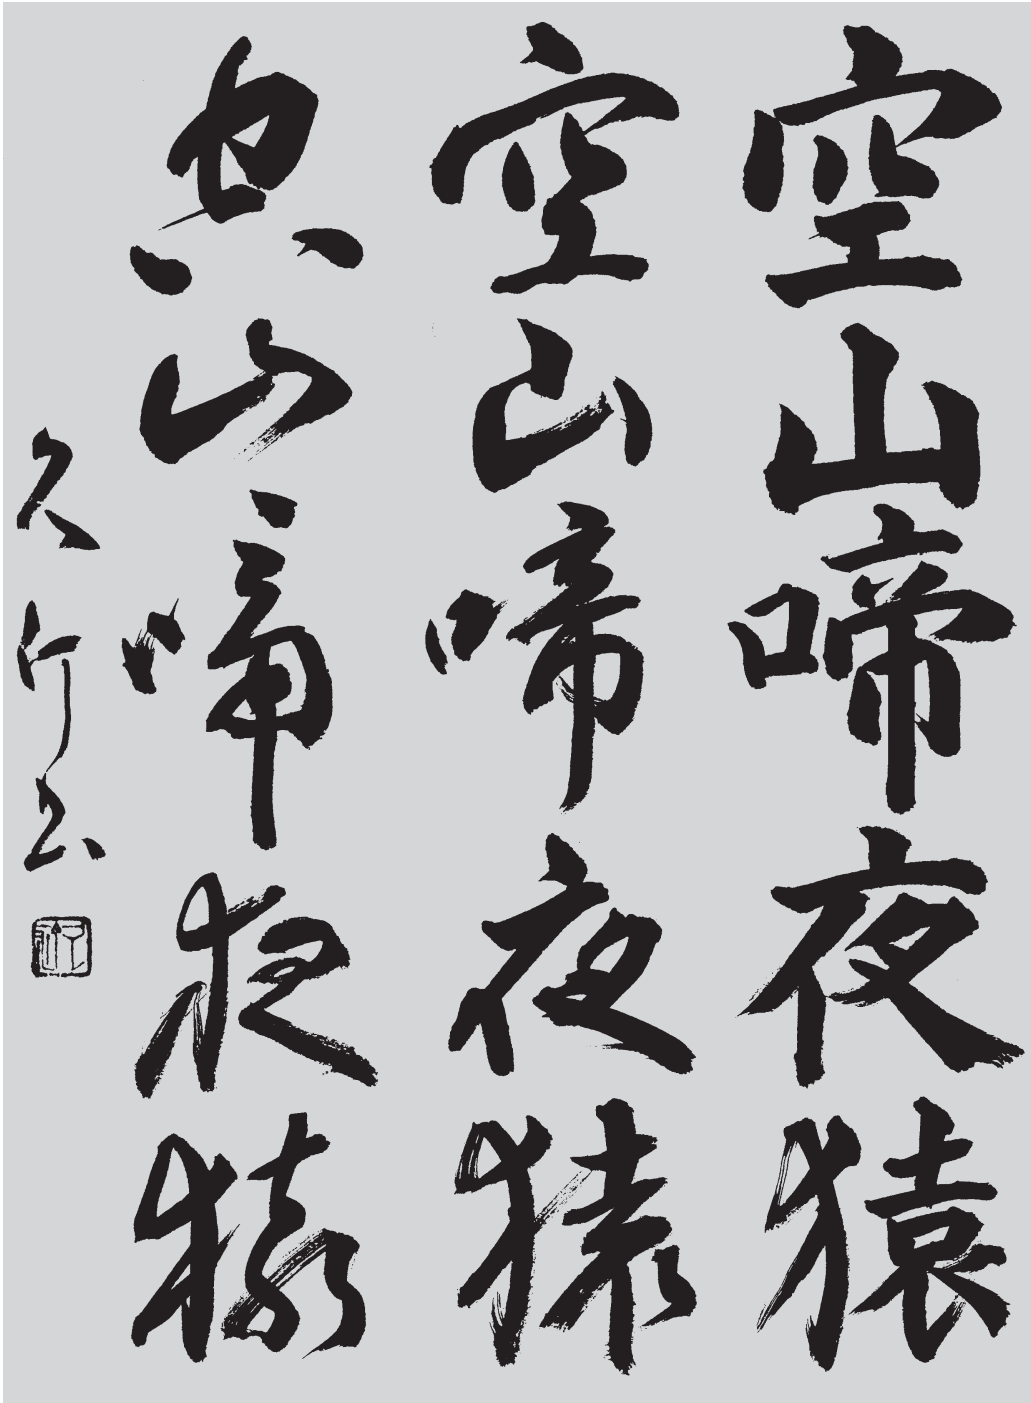 空山啼夜猿
空山啼夜猿
空山啼夜猿
久竹书